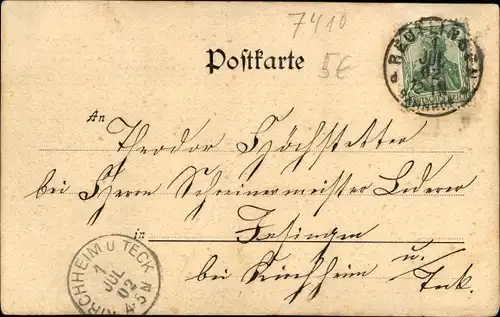 7410
Postkarte
5€
REUTLINGEN
1
JUL
02
BAHNHOF
An
Theodor Höchstetter
bei Herrn Schreinermeister Lederer
in Jesingen
bei Kirchheim u. Teck.
KIRCHHEIM U. TECK
1
JUL
02
4-5 N